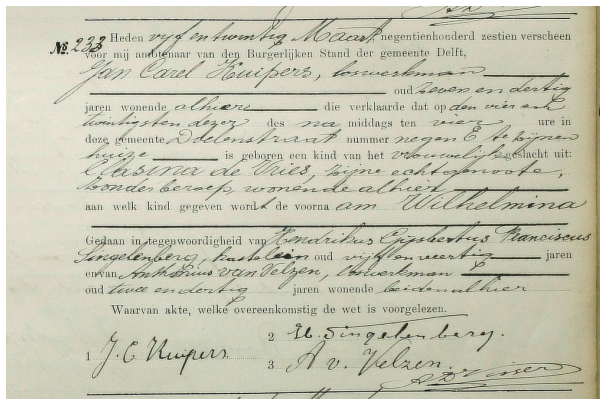 No. 233
Heden vijf en twintig Maart, negentienhonderd zestien verscheen
voor mij ambtenaar van den Burgerlijken Stand der gemeente Delft,
Jan Carel Kuipers, loswerkman
oud zeven en dertig
jaren wonende alhier die verklaarde dat op den vier en
twintigsten dezer des na middags ten vier ure in
deze gemeente, Doelenstraat nummer negen E te zijnen
huize is geboren een kind van het vrouwelijk geslacht uit:
Clasina de Vries, zijne echtgenoote,
zonder beroep, wonende alhier
aan welk kind gegeven wordt de voorna am Wilhelmina
Gedaan in tegenwoordigheid van Hendrikus Gijsbertus Franciscus
Singelenberg, kastelein oud vijf en veertig jaren
en van Anthonius van Velzen, loswerkman
oud twee en dertig jaren wonende beiden alhier
Waarvan akte, welke overeenkomstig de wet is voorgelezen.
1 J. C. Kuipers
2 H. Singelenberg.
3 A v. Velzen.